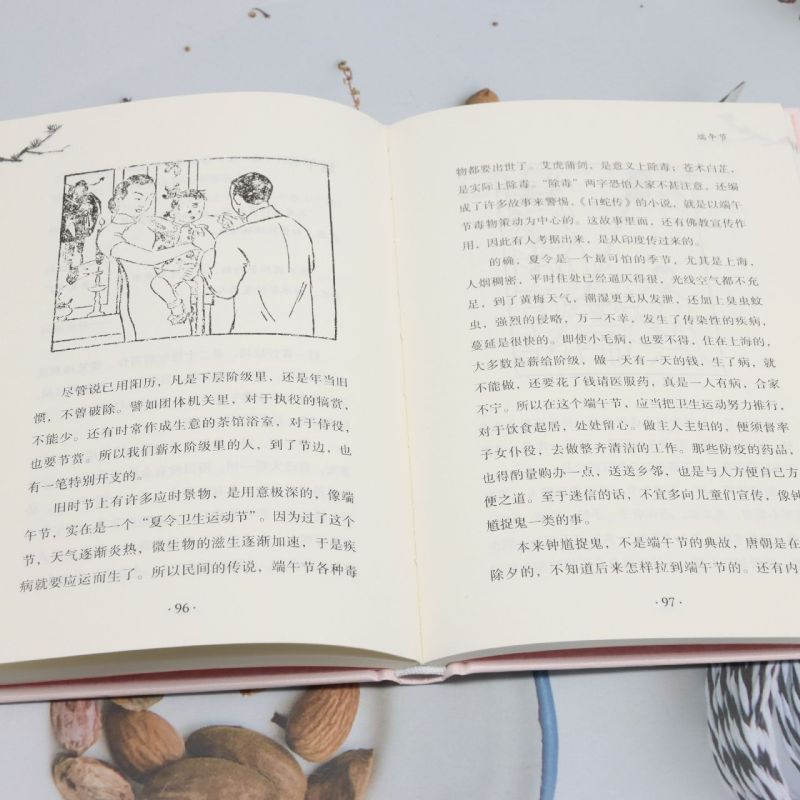 尽管说已用阳历，凡是下层阶级里，还是年当旧
惯，不曾破除。譬如团体机关里，对于执役的犒赏，
不能少。还有时常作成生意的茶馆浴室，对于侍役，
也要节赏。所以我们薪水阶级里的人，到了节边，也
有一笔特别开支的。
旧时节上有许多应时景物，是用意极深的，像端
午节，实在是一个“夏令卫生运动节”。因为过了这个
节，天气逐渐炎热，微生物的滋生逐渐加速，于是疾
病就要应运而生了。所以民间的传说，端午节各种毒
·96·
端午节
物都要出世了。艾虎蒲剑，是意义上除毒；苍术白芷，
是实际上除毒。“除毒”两字恐怕人家不甚注意，还编
成了许多故事来警惕，《白蛇传》的小说，就是以端午
节毒物策动为中心的。这故事里面，还有佛教宣传作
用，因此有人考据出来，是从印度传过来的。
的确，夏令是一个最可怕的季节，尤其是上海，
人烟稠密，平时住处已经逼仄得很，光线空气都不充
足，到了黄梅天气，潮湿更无从发泄，还加上臭虫蚊
虫，强烈的侵略，万一不幸，发生了传染性的疾病，
蔓延是很快的。即使小毛病，也要不得，住在上海的，
大多数是薪给阶级，做一天有一天的钱，生了病，就
不能做，还要花了钱请医服药，真是一人有病，合家
不宁。所以在这个端午节，应当把卫生运动努力推行，
对于饮食起居，处处留心。做主人主妇的，便须督率
子女仆役，去做整齐清洁的工作。那些防疫的药品，
也得酌量购办一点，送送乡邻，也是与人方便自己方
便之道。至于迷信的话，不宜多向儿童们宣传，像钟
馗捉鬼一类的事。
本来钟馗捉鬼，不是端午节的典故，唐朝是在
除夕的，不知道后来怎样拉到端午节的。还有内
·97·